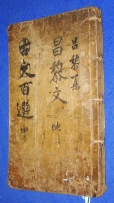 呂黎集
昌黎文 地
古文百選 坤